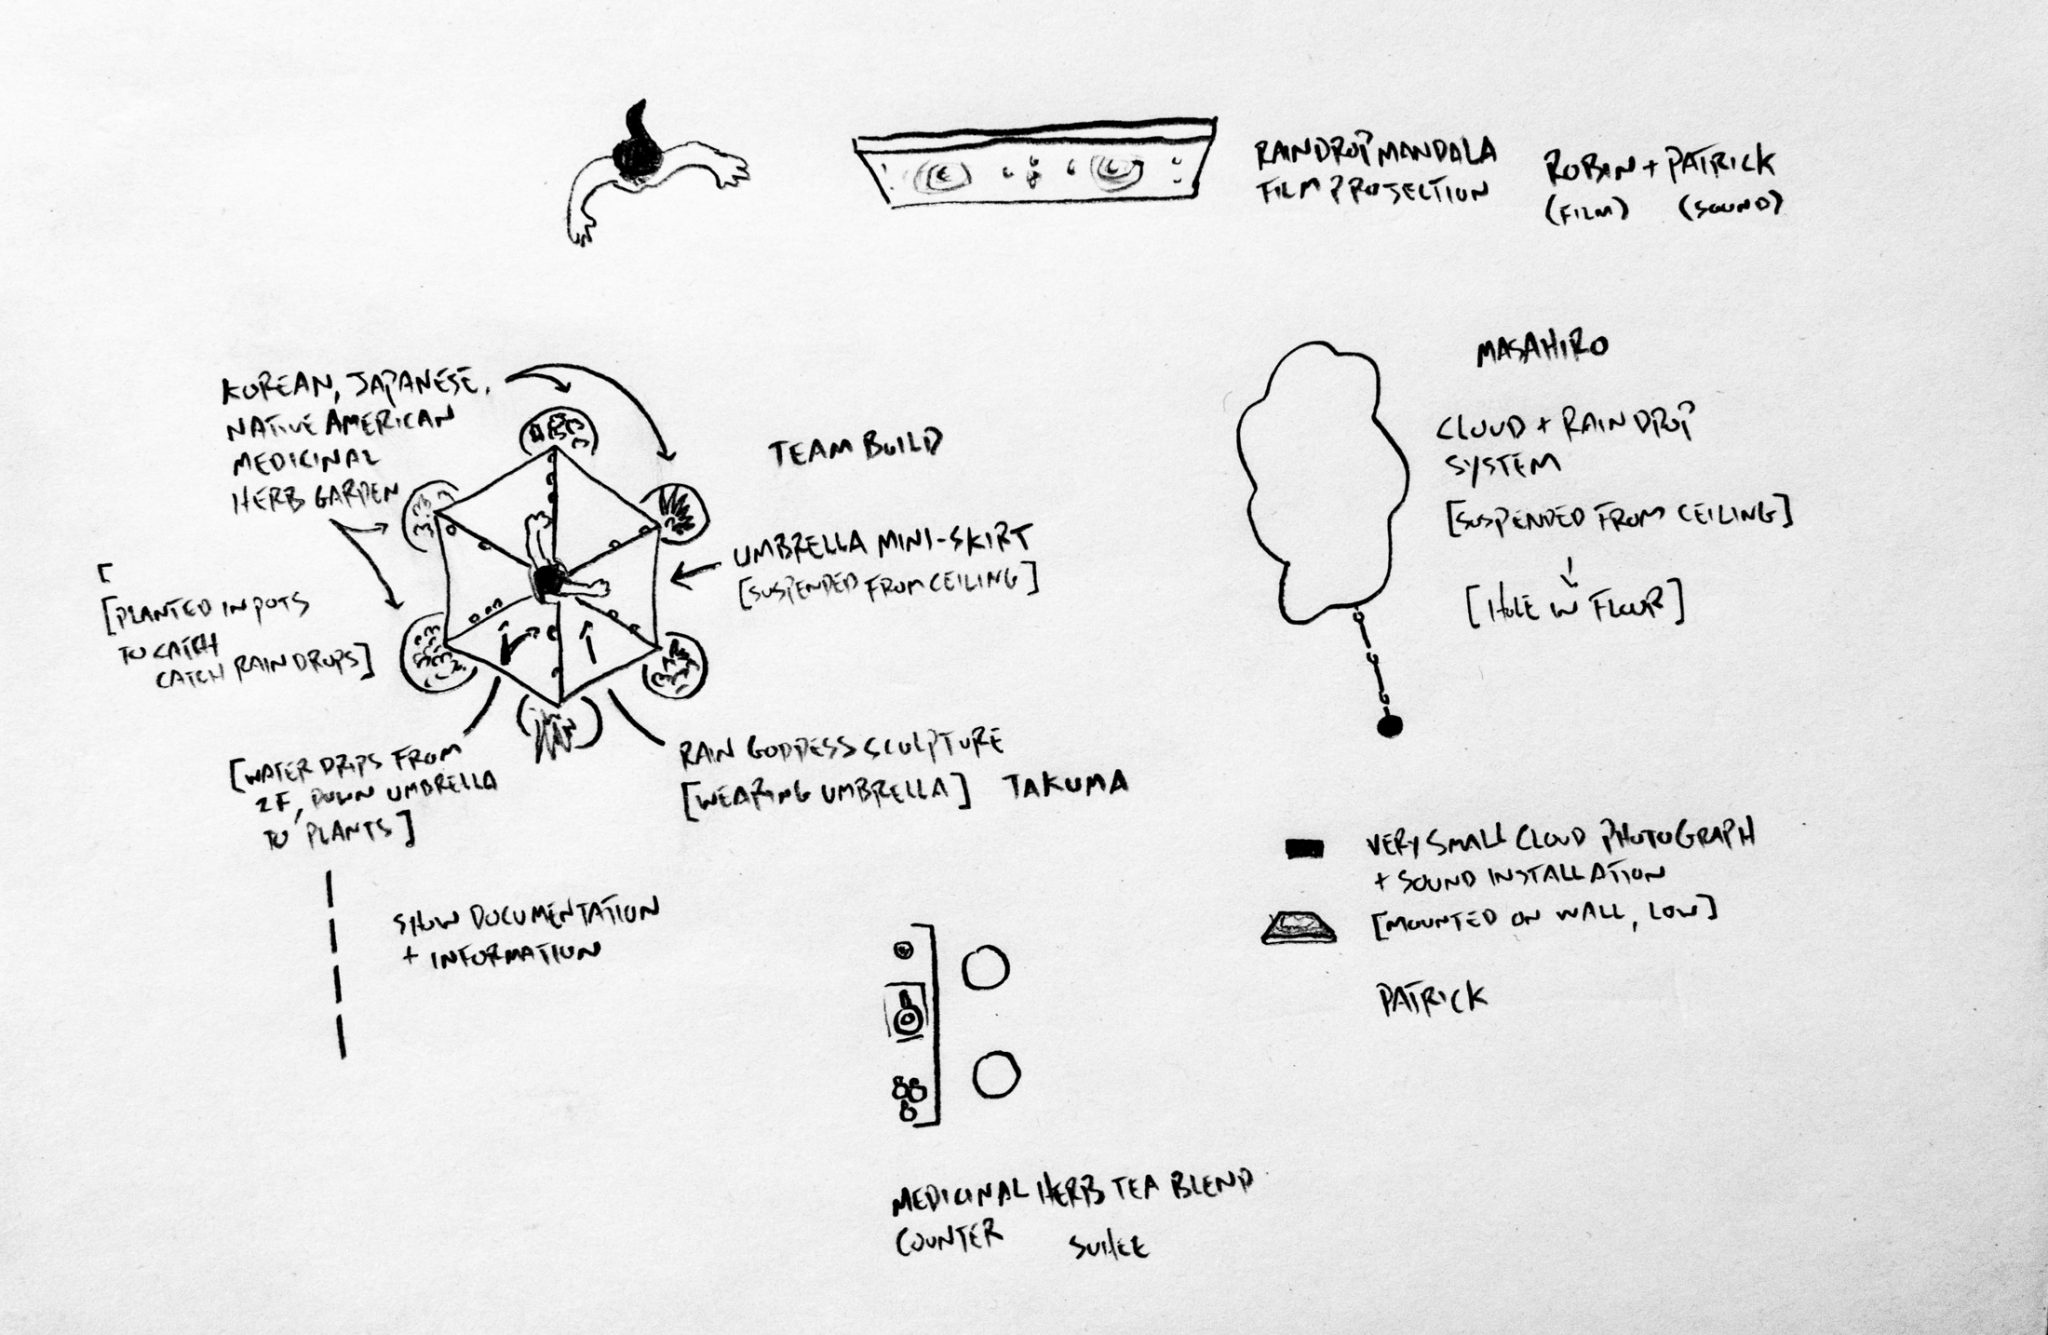 RAINDROP MANDALA
FILM PROJECTION
ROBIN + PATRICK
(FILM) (SOUND)
KOREAN, JAPANESE,
NATIVE AMERICAN
MEDICINAL
HERB GARDEN
TEAM BUILD
MASAHIRO
CLOUD + RAINDROP
SYSTEM
[SUSPENDED FROM CEILING]
[HOLE IN FLOOR]
UMBRELLA MINI-SKIRT
[SUSPENDED FROM CEILING]
[
[PLANTED IN POTS
TO CATCH
CATCH RAINDROPS]
[WATER DRIPS FROM
2F, DOWN UMBRELLA
TO PLANTS]
RAIN GODDESS SCULPTURE
[WEARING UMBRELLA] TAKUMA
VERY SMALL CLOUD PHOTOGRAPH
+ SOUND INSTALLATION
[MOUNTED ON WALL, LOW]
PATRICK
SHOW DOCUMENTATION
+ INFORMATION
MEDICINAL HERB TEA BLEND
COUNTER SUHEE